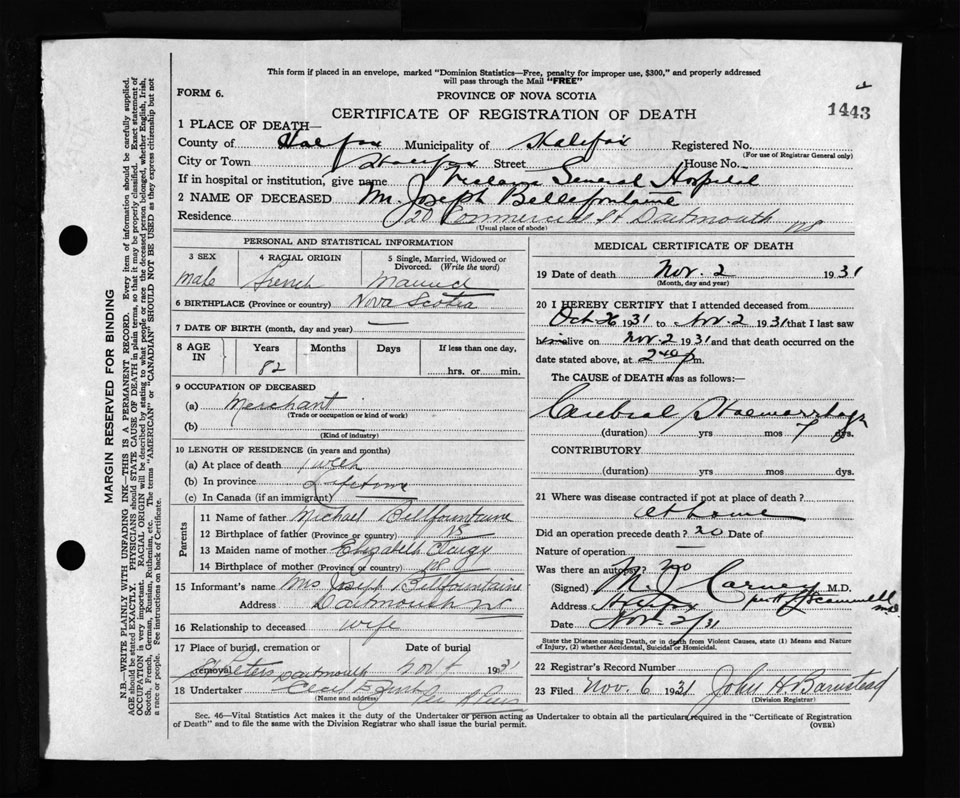 This form if placed in an envelope, marked "Dominion Statistics—Free, penalty for improper use, $300," and properly addressed
will pass through the Mail "FREE"
FORM 6.
PROVINCE OF NOVA SCOTIA
1443
CERTIFICATE OF REGISTRATION OF DEATH
1 PLACE OF DEATH—
County of Halifax Municipality of Halifax Registered No.
(For use of Registrar General only)
City or Town Halifax Street House No.
If in hospital or institution, give name General Hospital
2 NAME OF DECEASED Mr. Joseph Bellefontaine
Residence 20 Commercial St Dartmouth NS
(Usual place of abode)
PERSONAL AND STATISTICAL INFORMATION
3 SEX 4 RACIAL ORIGIN 5 Single, Married, Widowed or Divorced. (Write the word)
Male French Married
6 BIRTHPLACE (Province or country) Nova Scotia
7 DATE OF BIRTH (month, day and year) —
8 AGE IN Years Months Days If less than one day,
82 hrs. or min.
9 OCCUPATION OF DECEASED
(a) Merchant
(Trade or occupation or kind of work)
(b)
(Kind of industry)
10 LENGTH OF RESIDENCE (in years and months)
(a) At place of death 1 week
(b) In province Lifetime
(c) In Canada (if an immigrant)
Parents
11 Name of father Michael Bellfountaine
12 Birthplace of father (Province or country) NS
13 Maiden name of mother Elizabeth
14 Birthplace of mother (Province or country) NS
15 Informant's name Mrs Joseph Bellfountaine
Address Dartmouth NS
16 Relationship to deceased wife
17 Place of burial, cremation or removal Date of burial
St Peters Dartmouth Nov 4 1931
18 Undertaker
(Name and address)
MEDICAL CERTIFICATE OF DEATH
19 Date of death Nov. 2 1931
(Month, day and year)
20 I HEREBY CERTIFY that I attended deceased from
Oct 26 1931 to Nov 2 1931 that I last saw
him alive on Nov 2 1931 and that death occurred on the
date stated above, at 2 40 p m.
The CAUSE of DEATH was as follows:
Cerebral Haemorrhage
(duration) yrs mos 7 dys.
CONTRIBUTORY
(duration) yrs mos dys.
21 Where was disease contracted if not at place of death?
at home
Did an operation precede death? no Date of
Nature of operation —
Was there an autopsy? no
(Signed) M. J. Carney M.D.
per Scammell M.D.
Address Halifax
Date Nov. 2/31
State the Disease causing Death, or in death from Violent Causes, state (1) Means and Nature
of Injury, (2) whether Accidental, Suicidal or Homicidal.
22 Registrar's Record Number
23 Filed Nov. 6 1931 John H. Barnstead
(Division Registrar)
Sec. 46—Vital Statistics Act makes it the duty of the Undertaker or person acting as Undertaker to obtain all the particulars required in the "Certificate of Registration
of Death" and to file the same with the Division Registrar who shall issue the burial permit. (OVER)
MARGIN RESERVED FOR BINDING
N.B.—WRITE PLAINLY WITH UNFADING INK—THIS IS A PERMANENT RECORD. Every item of information should be carefully supplied.
AGE should be stated EXACTLY. PHYSICIANS should STATE CAUSE OF DEATH in plain terms, so that it may be properly classified. Exact statement of
OCCUPATION is very important. RACIAL ORIGIN will be described by stating to what people or race the deceased person belonged, whether English, Irish,
Scotch, French, German, Russian, Ruthenian, etc. The terms "AMERICAN" or "CANADIAN" SHOULD NOT BE USED as they express citizenship but not
a race or people. See instructions on back of Certificate.